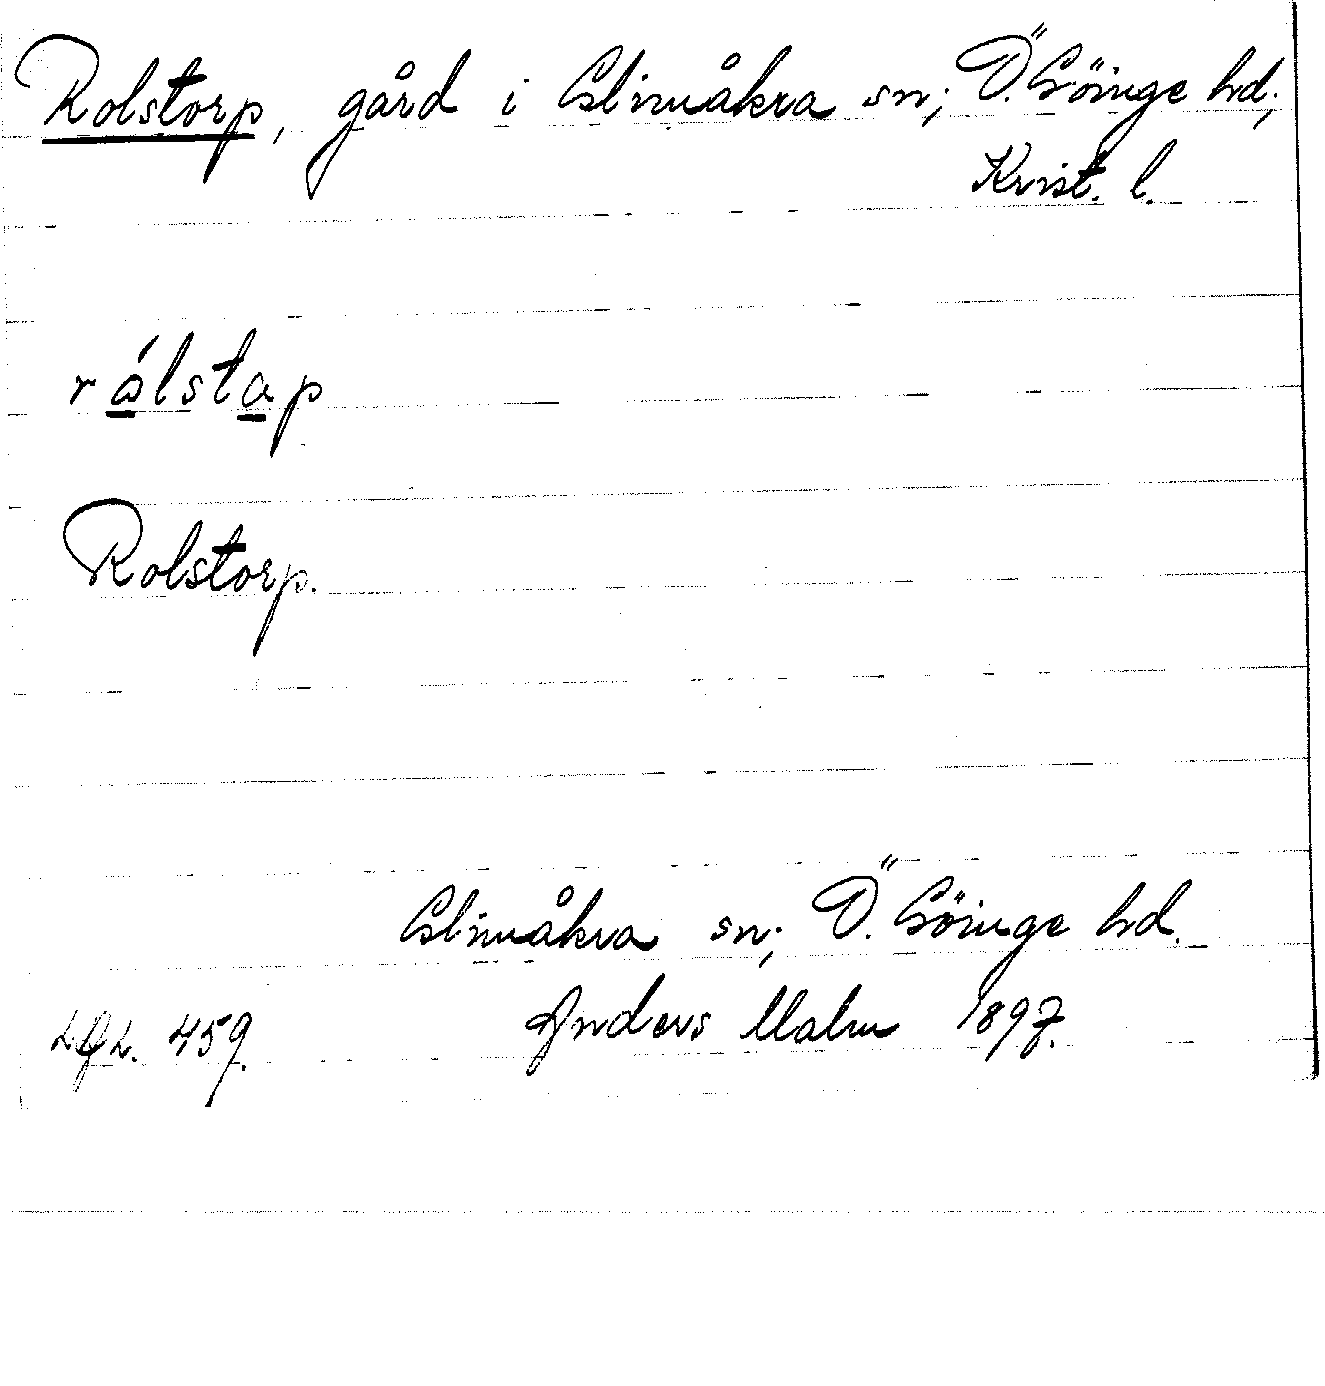 Rolstorp, gård i Glimåkra sn; Ö. Göinge hd;
Krist. l.
rálstap
Rolstorp.
Glimåkra sn; Ö. Göinge hd.
Anders Malm 1897.
459.